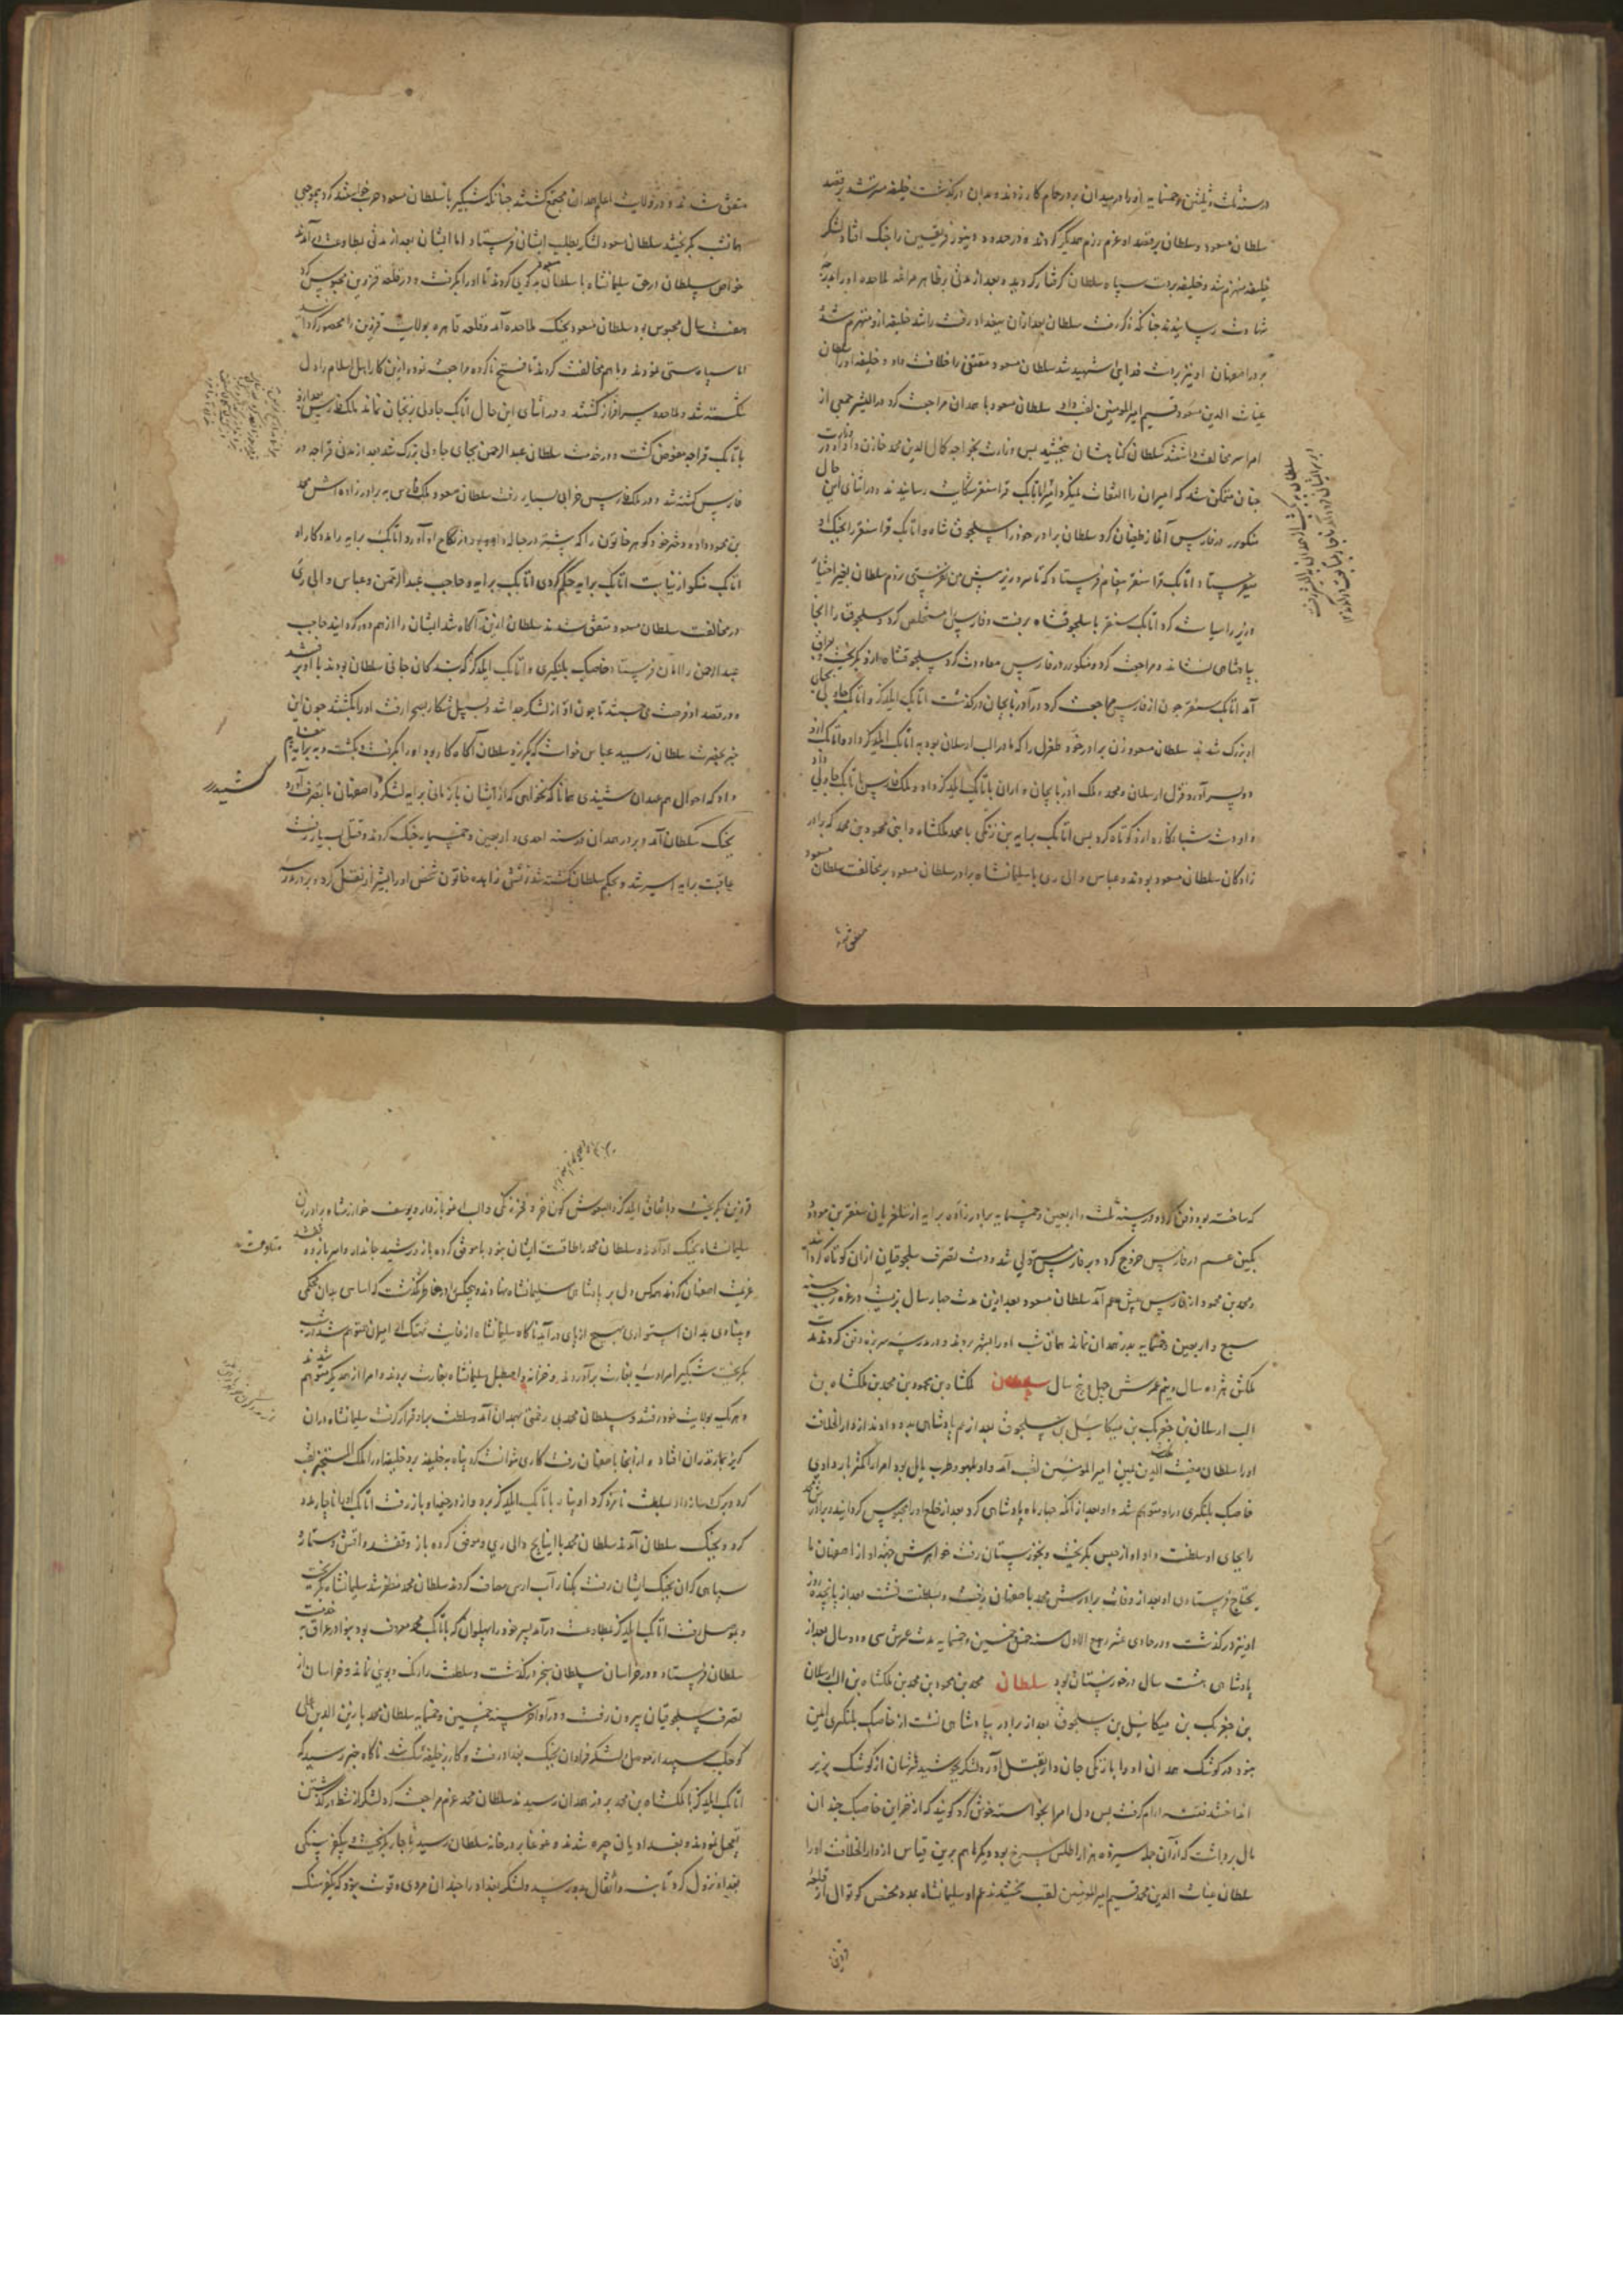 در سنه ثلث و ثلثین و خمسمایه او را در میدان بر در حمام کارد زدند و بدان درگذشت خلیفه مسترشد بر قصد
سلطان مسعود و سلطان بر قصد او عزم رزم همدیگر کردند و در حدود دینور فریقین را جنک افتاد و لشکر
خلیفه منهزم شد و خلیفه بر دست سپاه سلطان گرفتار کردید و بعد از مدتی بظاهر مراغه ملاحده او را بدرجه
شهادت رسانیدند چنانکه ذکر رفت سلطان بعد از آن ببغداد رفت راشد خلیفه ازو منهزم شد
بر در اصفهان او نیز بر دست فدایی شهید شد سلطان مسعود مقتفی را خلافت داد و خلیفه او را سلطان
غیاث الدین مسعود قسیم امیر المومنین لقب داد سلطان مسعود با همدان مراجعت کرد جمعی از
امرا سر مخالفت داشتند سلطان کناهشان ببخشید پس وزارت بخواجه کمال الدین محمد خازن داد و او در وزارت
چنان متمکن شد که امیران را التفات نمیکرد اتابک قراسنقر شکایت رسانیدند و در اثنای این حال
منکوبرز در فارس آغاز طغیان کرد سلطان برادر خود را سلجوق شاه و اتابک قراسنقر را بجنک او
میفرستاد اتابک قراسنقر پیغام فرستاد که تا سر وزیر پیش من نفرستی نروم سلطان بغیر اختیار
وزیر را سیاست کرد اتابک سنقر با سلجوقشاه برفت و فارس را مستخلص کرد و سلجوق را آنجا
بپادشاهی نشاند و مراجعت کرد و منکوبرز در فارس معاودت کرد سلجوقشاه ازو بکریخت و بعراق
آمد اتابک سنقر چون از فارس مراجعت کرد در آذربایجان درگذشت اتابک ایلدکز و اتابک جاولی بجای
او بزرک شدند سلطان مسعود زن برادر خود طغرل را که مادر الب ارسلان بود به اتابک ایلدکز داد و اتابک را ازو
دو پسر آورد قزل ارسلان و محمد و ملک اذربایجان و اران باتابک ایلدکز داد و ملک فارس باتابک جاولی داد
و او دست شبانکاره ازو کوتاه کرد پس اتابک برابه بن زنکی با محمد و ملکشاه ابنی محمود بن محمد که برادر
زادکان سلطان مسعود بودند و عباس والی ری با سلیمانشاه برادر سلطان مسعود بر مخالفت سلطان مسعود
متفق شدند
متفق شدند و در ولایت اعلم همدان مجتمع کشتند چنانکه شبکیر با سلطان مسعود حرب خواستند کرد بیموجبی
همانشب بکریختند سلطان مسعود لشکر بطلب ایشان فرستاد اما ایشان بعد از مدتی بطاوعت درآمدند
خواص سلطان در حق سلیمانشاه با سلطان مسعود بدکویی کردند تا او را بکرفت و در قلعه قزوین محبوس کرد
هفت سال محبوس بود سلطان مسعود بجنک ملاحده آمد و قلعه قاهره بولایت قزوین را محصور کردانید
اما سپاه سستی نمودند و با هم مخالفت کردند تا فتح ناکرده مراجعت نمود و ازین کار اهل اسلام را دل
شکسته شد و ملاحده سرافراز کشتند و در اثنای این حال اتابک جاولی بزنجان نماند ملک فارس بعد ازو
باتابک قراجه مفوض کشت و در خدمت سلطان عبدالرحمن بجای جاولی بزرک شد بعد از مدتی قراجه در
فارس کشته شد و در ملک فارس خرابی بسیار رفت سلطان مسعود ملک فارس به برادرزاده اش محمد
بن محمود داد و دختر خود کوهر خاتون را که پیشتر در حباله داود بود در نکاح او آورد و اتابک برابه را مددکار او
اتابک منکو از نیابت اتابک برابه حکم کردی اتابک برابه و حاجب عبدالرحمن و عباس والی ری
در مخالفت سلطان مسعود متفق شدند سلطان ازین آکاه شد ایشان را از هم دور کردانید حاجب
عبدالرحمن را باران فرستاد خاصبک بلنکری و اتابک ایلدکز که بندکان جانی سلطان بودند با او برفتند
و در قصد او فرصت می جستند تا چون او از لشکر جدا شد و بسبیل شکار بصحرا رفت او را بکشتند چون این
خبر بحضرت سلطان رسید عباس خواست که بکریزد سلطان آکاه کار بود او را بکرفت و بکشت و به برابه پیغام
داد که احوال همعهدان شنیدی همانا که نخواهی که از ایشان باز مانی برابه لشکر و اصفهان با تصرف آورد
بجنک سلطان آمد و بر در همدان در سنه احدی و اربعین و خمسمایه جنک کردند و قتل بسیار رفت
عاقبت برابه اسیر شد و بحکم سلطان کشته شد زنش زاهده خاتون شخص او را بشیراز نقل کرد و بر در مدرسه
که ساخته بود دفن کرد و در سنه ثلث و اربعین و خمسمایه برادرزاده برابه از سلغریان سنقر بن مودود
بکین عم در فارس خروج کرد و بر فارس مستولی شد و دست تصرف سلجوقیان از آن کوتاه کردانید
و محمد بن محمود از فارس پیش عم آمد سلطان مسعود بعد ازین مدت چهار سال بزیست در غره رجب سنه
سبع و اربعین و خمسمایه بدر همدان نماند همان شب او را بشهر بردند و در مدرسه سر برزه دفن کردند مدت
ملکش هژده سال و نیم عمرش چهل و پنج سال سلطان ملکشاه بن محمود بن محمد بن ملکشاه بن
الب ارسلان بن جغریبک بن میکاییل بن سلجوق بعد از عم پادشاهی بدو دادند از دارالخلافت
او را سلطان مغیث الدین یمین امیر المومنین لقب آمد و او بلهو و طرب مایل بود امرا را کمتر بار دادی
خاصبک بلنکری از او متوهم شد و او بعد از آنکه چهار ماه پادشاهی کرد بعد از خلع او را محبوس کردانید و برادرش محمد
را بجای او سلطنت داد او از حبس بکریخت و بخوزستان رفت خواهرش جهة او از اصفهان ما
یحتاج فرستادی او بعد از وفات برادرش محمد با صفهان رفت و بسلطنت نشست بعد از پانزده روز
او نیز درگذشت و در حادی عشر ربیع الاول سنه خمس و خمسین و خمسمایه مدت عمرش سی و دو سال بعد از
پادشاهی هشت سال در خوزستان بود سلطان محمد بن محمود بن محمد بن ملکشاه بن الب ارسلان
بن جغریبک بن میکاییل بن سلجوق بعد از برادر بپادشاهی نشست از خاصبک بلنکری ایمن
نبود در کوشک همدان او را با زنکی جاندار بقتل آورد لشکر بجوشید سرشان از کوشک بزیر
انداختند فتنه آرام کرفت پس دل امرا بخواسته خوش کرد کویند که از خزاین خاصبک چندان
مال برداشت که از آن جمله سیزده هزار اطلس سرخ بود دیکر ها هم برین قیاس از دارالخلافت او را
سلطان غیاث الدین محمد قسیم امیر المومنین لقب بخشیدند عم او سلیمانشاه بمدد محتص کوتوال از قلعه
قزوین
قزوین بکریخت و باتفاق ایلدکز و
سلیمانشاه بجنک او آمدند و سلطان محمد را طاقت ایشان نبود با موفق کرد بازو و رشید جاندار و امیر بازدار
عزیمت اصفهان کردند همه کس دل بر پادشاهی سلیمانشاه نهادند و هیچکس را در خاطر نکذشت که اساسی بدان محکمی
و بنیادی بدان استواری بهیچ از پای درآید ناکاه سلیمانشاه از غایت امیران متوهم شد در شب
بکریخت شبکیر امرا دست بغارت برآوردند و خزانه و اصطبل سلیمانشاه بغارت بردند و امرا از همدیکر متوهم شدند
و هر یک بولایت خود رفتند و سلطان محمد بی زحمتی بهمدان آمد و سلطنت برو قرار کرفت سلیمانشاه در آن
کریز بمازندران افتاد و از آنجا باصفهان رفت کاری نتوانست کرد پناه بخلیفه برد خلیفه او را الملک المستجیر لقب
کرد و برک ساز داد و بسلطنت نامزد کرد او پناه باتابک ایلدکز برد و از در حمیا و باز رفت اتابک او را ناچار مدد
کرد و بجنک سلطان آمدند سلطان محمد با اینانج والی ری و موفق کرد بازو و قفشد و اقش و ستماز و
سپاهی کران بجنک ایشان رفت بکنار آب ارس مصاف کردند سلطان محمد مظفر شد سلیمانشاه بکریخت
و بموصل رفت اتابک ایلدکز بمطاوعت درآمد پسر خود را پهلوان که باتابک محمد معروف بود بنوا در عراق بخدمت
سلطان فرستاد و در خراسان سلطان سنجر درگذشت و سلطنت را رنک و بویی نماند و خراسان از
تصرف سلجوقیان بیرون رفت و در اواخر سنه خمسین و خمسمایه سلطان محمد با زین الدین علی
کوجک سپهبد از موصل لشکر فراوان بجنک بغداد رفت و کار بر خلیفه تنک شد ناکاه خبر رسید که
اتابک ایلدکز با ملکشاه بن محمد بر در همدان رسیدند سلطان محمد عزم مراجعت کرد لشکر از شط در گذشتن
تعجیل نمودند و بغدادیان چیره شدند و غوغا بر در خانه سلطان رسید ناچار بکریخت و بیکفرسنکی
بغداد نزول کرد تا بنه و اثقال بدو رسید و لشکر بغداد را چندان مردی و قوت نبود که یکفرسنک